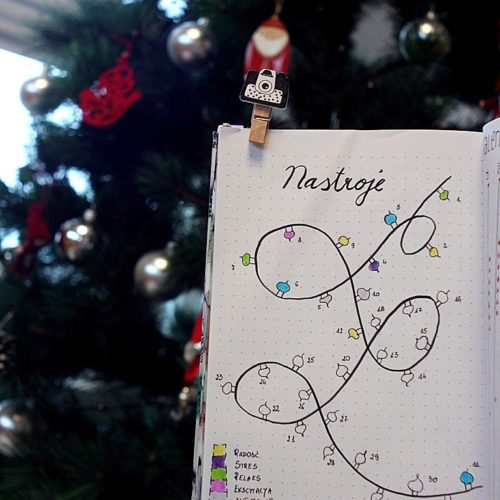 Nastroje
1
3
2
9
8
4
7
6
5
10
16
18
17
12
15
13
14
20
25
24
23
26
22
27
21
28
29
30
31
RADOŚĆ
STRES
RELAKS
EKSCYTACJA